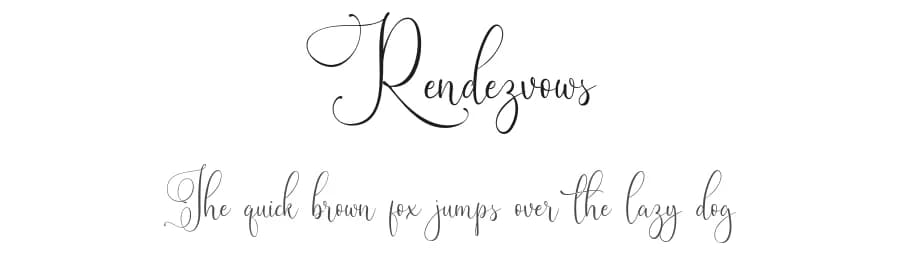 Rendezvows
The quick brown fox jumps over the lazy dog